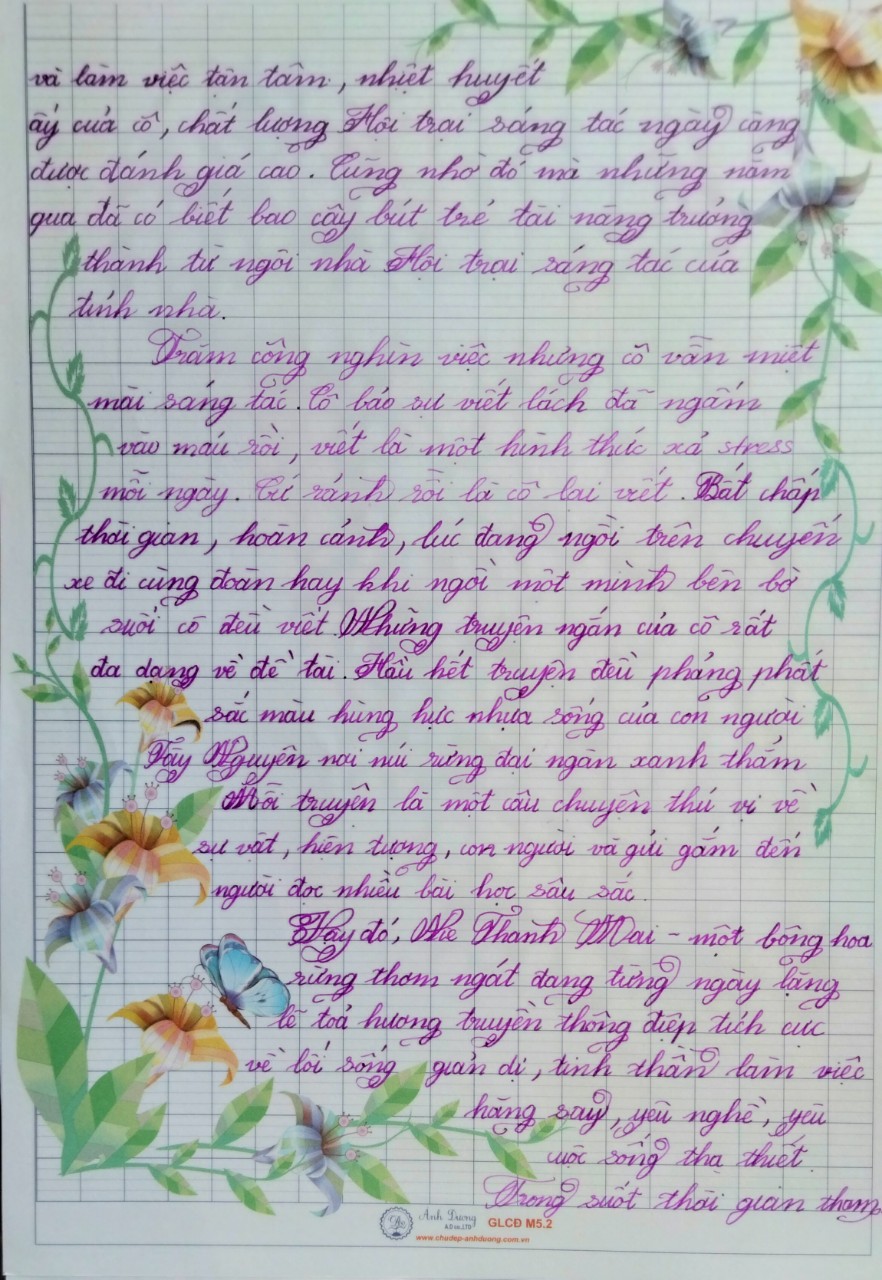 và làm việc tận tâm, nhiệt huyết
ấy của cô, chất lượng Hội trại sáng tác ngày càng
được đánh giá cao. Cũng nhờ đó mà những năm
qua đã có biết bao cây bút trẻ tài năng trưởng
thành từ ngôi nhà Hội trại sáng tác của
tỉnh nhà.
Trăm công nghìn việc nhưng cô vẫn miệt
mài sáng tác. Cô bảo sự viết lách đã ngấm
vào máu rồi, viết là một hình thức xả stress
mỗi ngày. Cứ rảnh rỗi là cô lại viết. Bất chấp
thời gian, hoàn cảnh, lúc đang ngồi trên chuyến
xe đi cùng đoàn hay khi ngồi một mình bên bờ
suối cô đều viết. Những truyện ngắn của cô rất
đa dạng về đề tài. Hầu hết truyện đều phảng phất
sắc màu hừng hực nhựa sống của con người
Tây Nguyên nơi núi rừng đại ngàn xanh thẳm
Mỗi truyện là một câu chuyện thú vị về
sự vật, hiện tượng, con người và gửi gắm đến
người đọc nhiều bài học sâu sắc.
Vậy đó, Nie Thanh Mai - một bông hoa
rừng thơm ngát đang từng ngày lặng
lẽ toả hương truyền thông điệp tích cực
về lối sống giản dị, tinh thần làm việc
hăng say, yêu nghề, yêu
cuộc sống tha thiết.
Trong suốt thời gian tham
Ánh Dương
A.D co.,LTD
GLCĐ M5.2
www.chudep-anhduong.com.vn